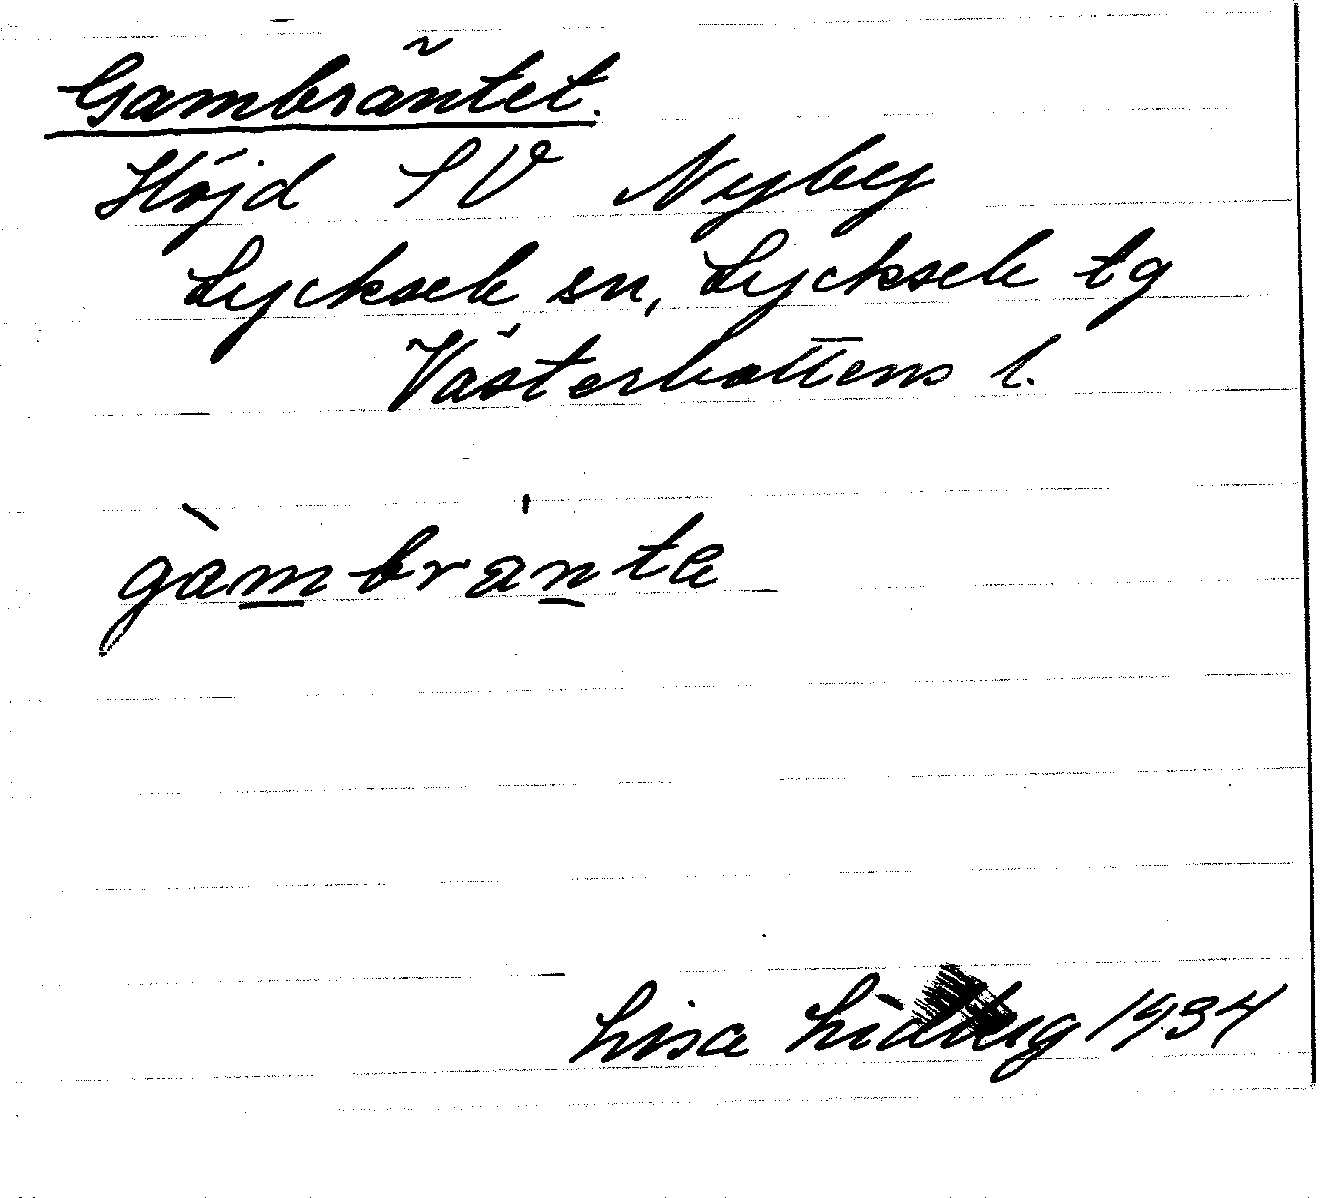 Gambräntet.
Höjd SV Nyby
Lycksele sn, Lycksele tg
Västerbottens l.
gàmbrànta
Lisa Lidberg 1934